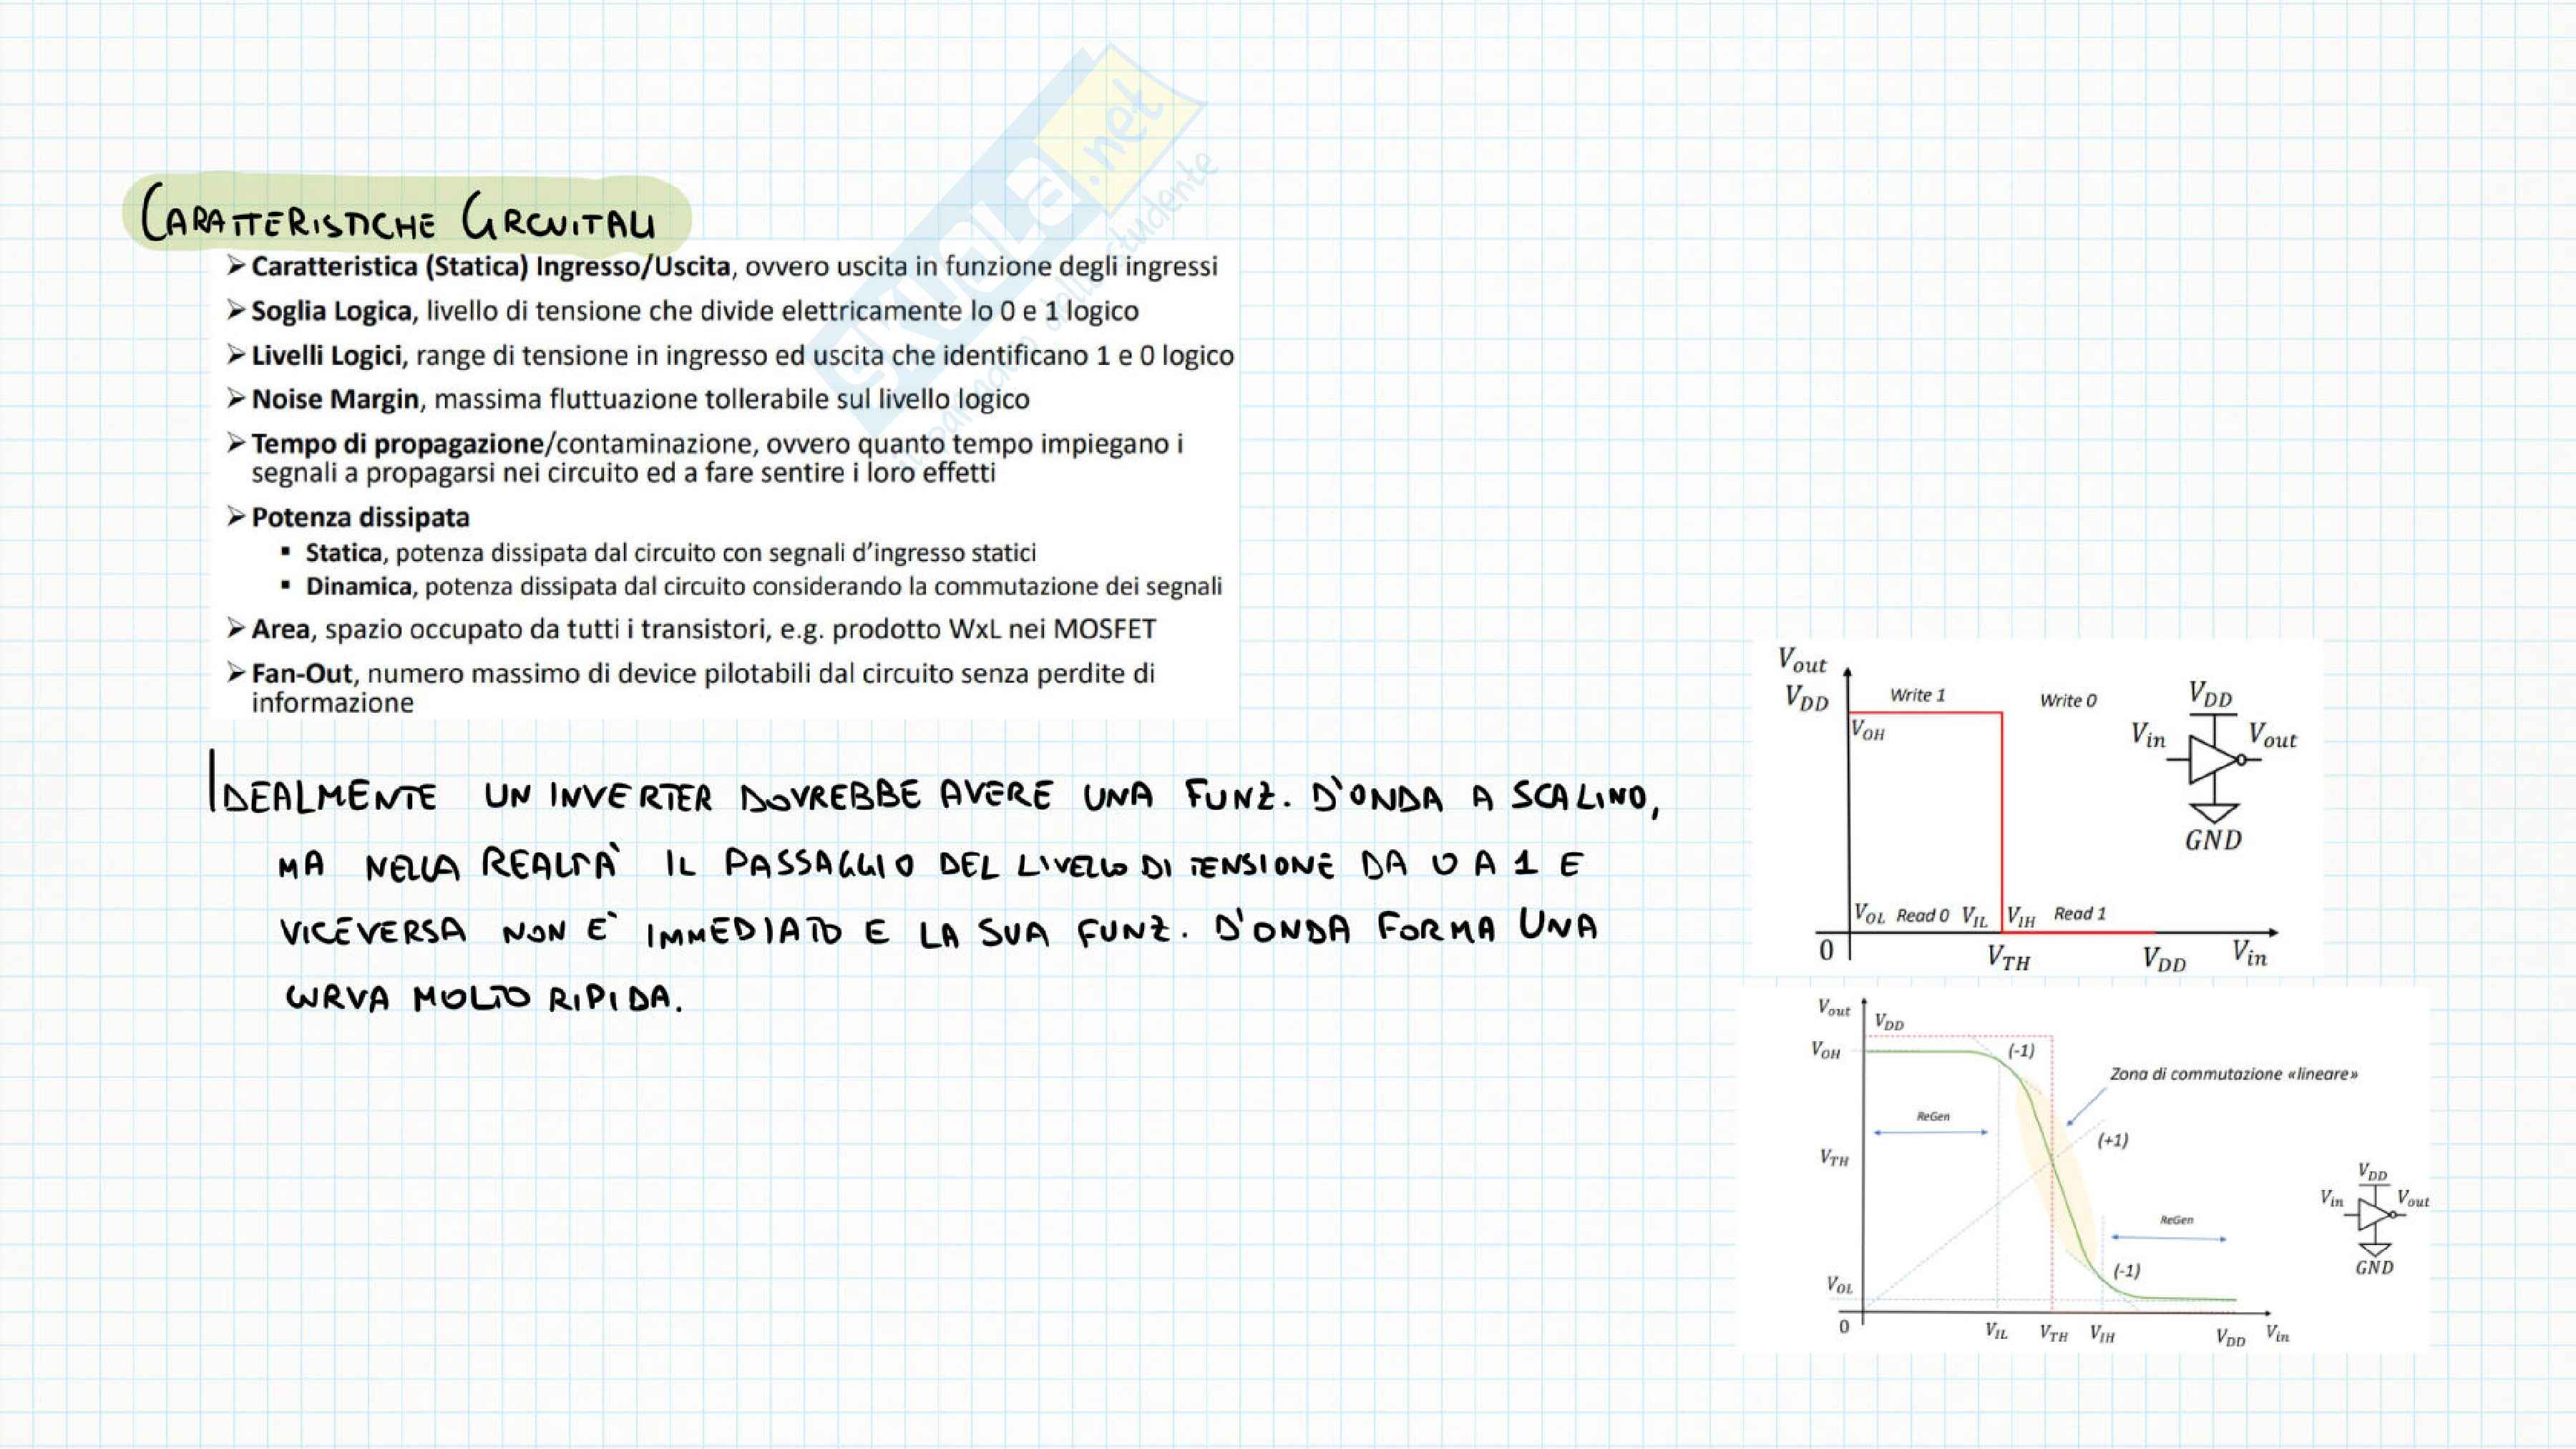 CARATTERISTICHE CIRCUITALI
➢ Caratteristica (Statica) Ingresso/Uscita, ovvero uscita in funzione degli ingressi
➢ Soglia Logica, livello di tensione che divide elettricamente lo 0 e 1 logico
➢ Livelli Logici, range di tensione in ingresso ed uscita che identificano 1 e 0 logico
➢ Noise Margin, massima fluttuazione tollerabile sul livello logico
➢ Tempo di propagazione/contaminazione, ovvero quanto tempo impiegano i
segnali a propagarsi nei circuito ed a fare sentire i loro effetti
➢ Potenza dissipata
▪ Statica, potenza dissipata dal circuito con segnali d'ingresso statici
▪ Dinamica, potenza dissipata dal circuito considerando la commutazione dei segnali
➢ Area, spazio occupato da tutti i transistori, e.g. prodotto WxL nei MOSFET
➢ Fan-Out, numero massimo di device pilotabili dal circuito senza perdite di
informazione
SKUOLA.net
IDEALMENTE UN INVERTER DOVREBBE AVERE UNA FUNZ. D'ONDA A SCALINO,
MA NELLA REALTÀ IL PASSAGGIO DEL LIVELLO DI TENSIONE DA 0 A 1 E
VICEVERSA NON E' IMMEDIATO E LA SUA FUNZ. D'ONDA FORMA UNA
CURVA MOLTO RIPIDA.
Vout
VDD Write 1 Write 0 VDD
VOH Vin Vout
GND
VOL Read 0 VIL VIH Read 1
0 VTH VDD Vin
Vout VDD
VOH (-1)
Zona di commutazione «lineare»
ReGen
(+1)
VTH
VDD
Vin Vout
ReGen
GND
(-1)
VOL
0 VIL VTH VIH VDD Vin